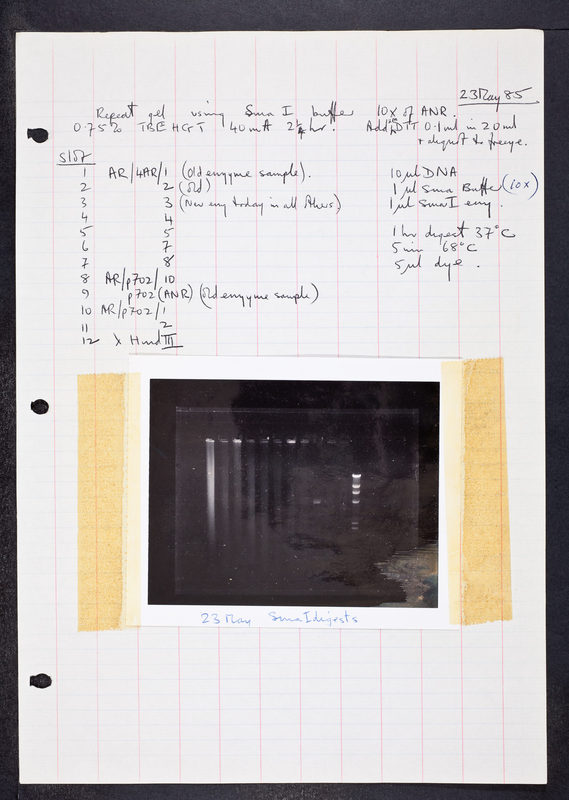 23 May 85
Repeat gel using Sma I buffer 10x of ANR.
0.75% TBE HGT 40mA 2¼ hr. Add DTT 0.1ml in 20ml
+ digest to freeze.
Slot
1 AR/4AR/1 (Old enzyme sample). 10 µl DNA
2 2 (old) 1 µl Sma Buffer (10x)
3 3 (New enz today in all others) 1 µl SmaI enz.
4 4
5 5 1 hr digest 37°C
6 7 5 min 68°C
7 8 5 µl dye.
8 AR/p702/10
9 p702 (ANR) (old enzyme sample)
10 AR/p702/1
11 2
12 λ Hind III
23 May Sma I digests